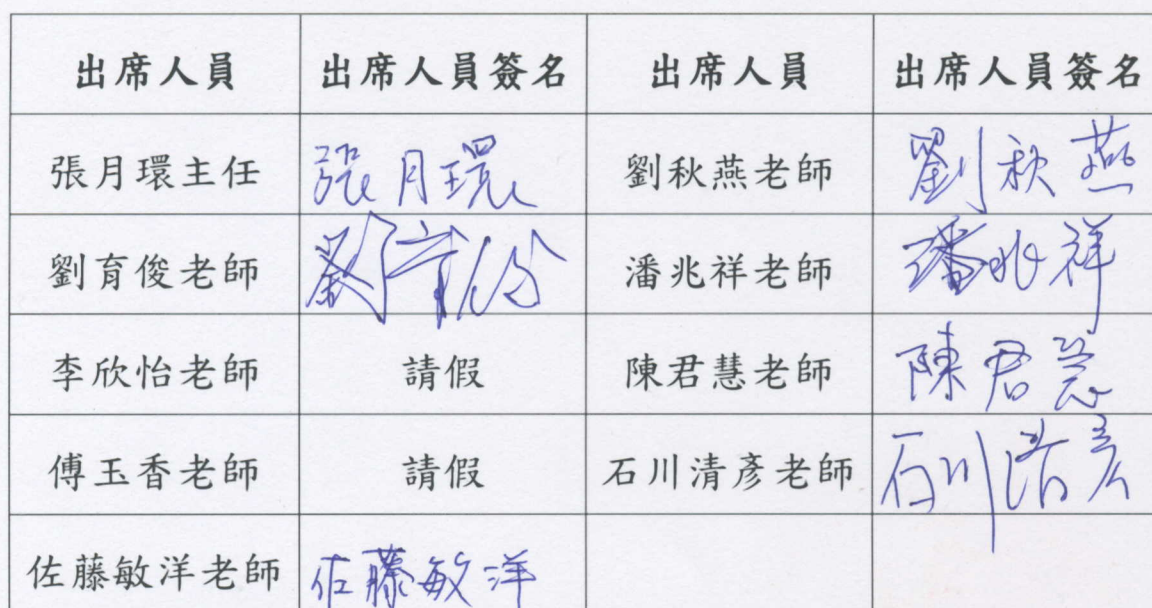 出席人員 出席人員簽名 出席人員 出席人員簽名
張月環主任 張月環 劉秋燕老師 劉秋燕
劉育俊老師 劉育俊 潘兆祥老師 潘兆祥
李欣怡老師 請假 陳君慧老師 陳君慧
傅玉香老師 請假 石川清彥老師 石川清彥
佐藤敏洋老師 佐藤敏洋